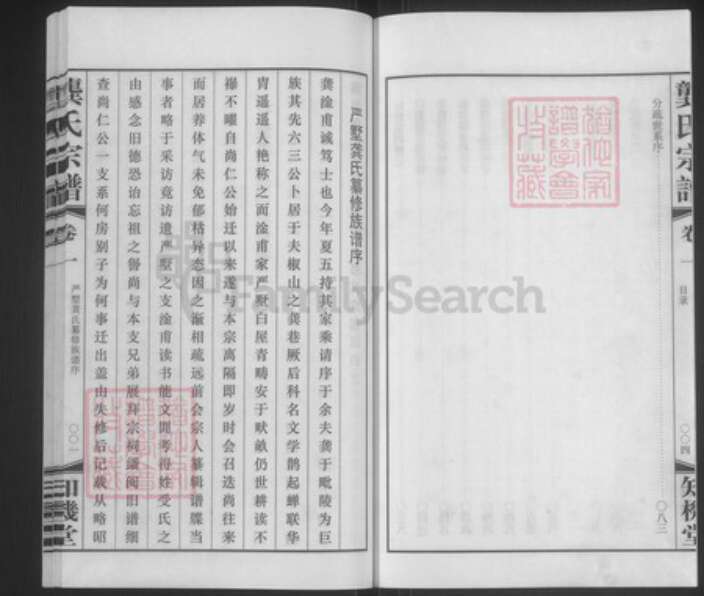 龚氏宗谱
卷一
目录
〇〇四
知机堂
分疏世系序
〇八三
严墅龚氏纂修族谱序
龚淦甫诚笃士也今年夏五持其家乘请序于余夫龚于毗陵为巨
族其先六三公卜居于夫椒山之龚巷厥后科名文学鹊起蝉联华
胄遥遥人艳称之而淦甫家严墅白屋青畴安于畎亩仍世耕读不
襮不曜自尚仁公始迁以来遂与本宗离隔即岁时会召迭尚往来
而居养体气未免郁格异态因之渐相疏远前会宗人纂辑谱牒当
事者略于采访竟访遗严墅之支淦甫读书能文则考得姓受氏之
由感念旧德恐诒忘祖之咎尚与本支兄弟展拜宗祠缅阅旧谱细
查尚仁公一支系何房别子为何事迁出盖由失修后记载从略昭
龚氏宗谱
卷一
严墅龚氏纂修族谱序
〇〇一
知机堂
FamilySearch